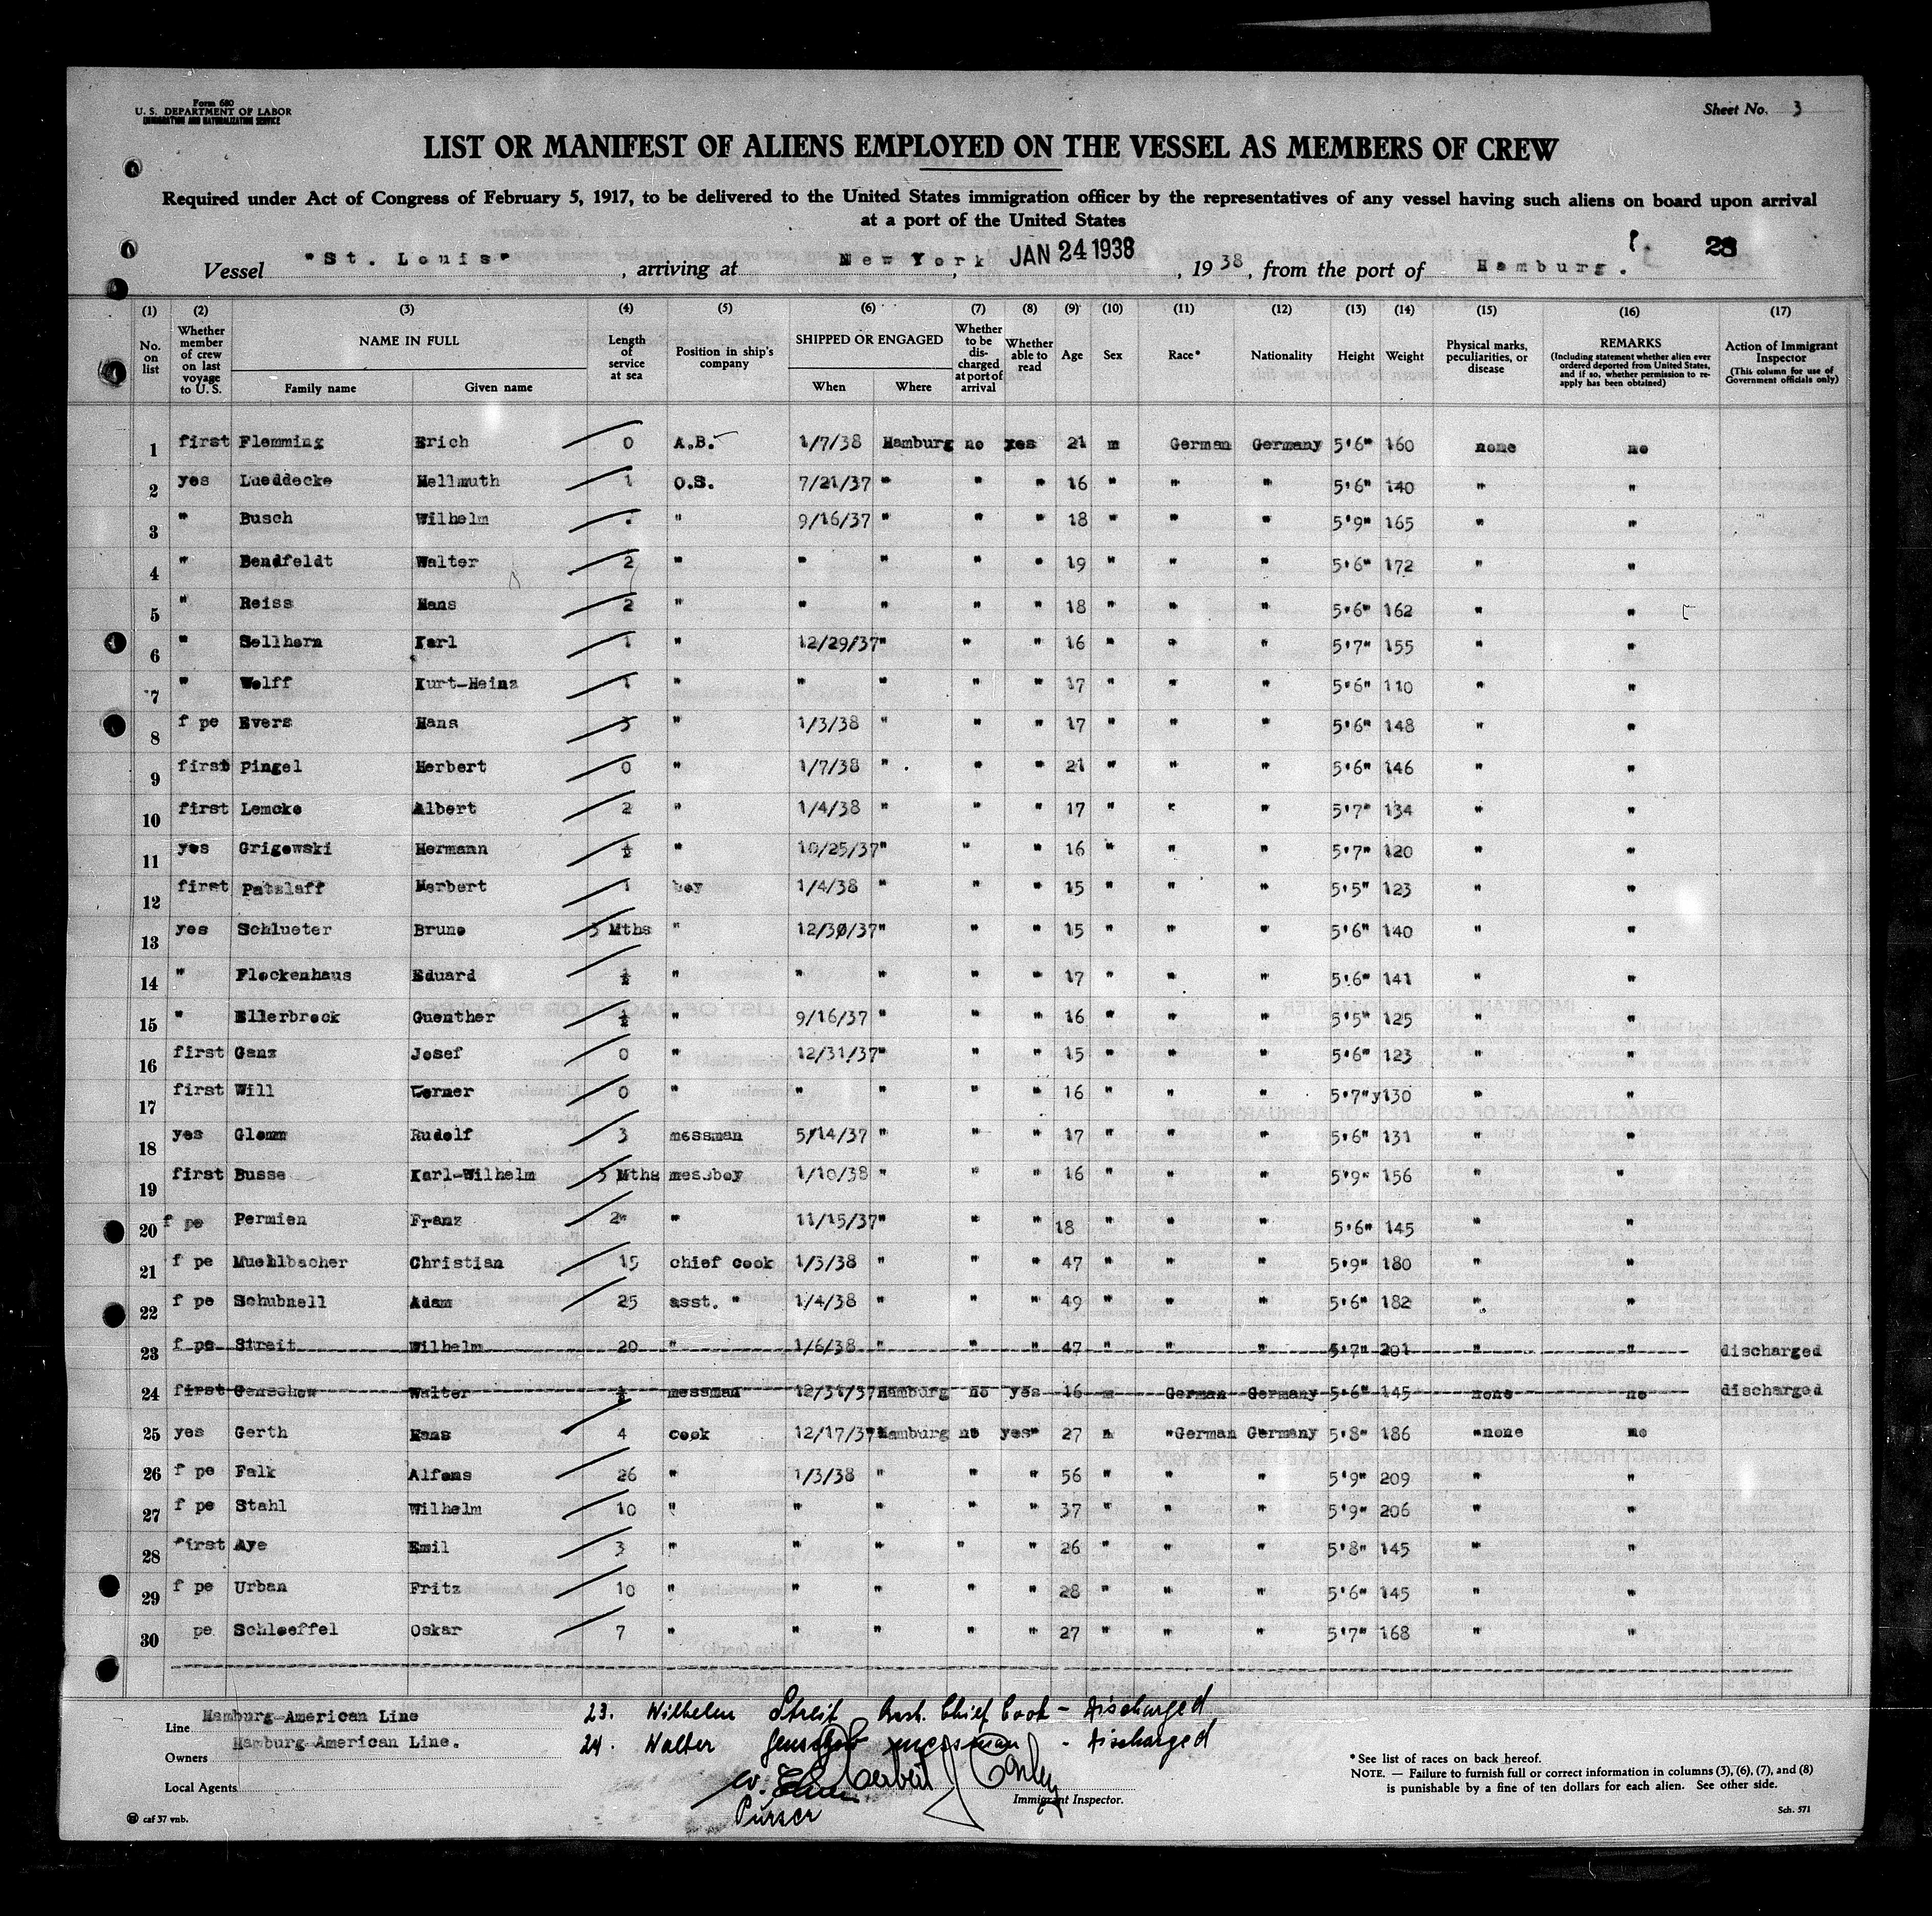 Form 680
U. S. DEPARTMENT OF LABOR
IMMIGRATION AND NATURALIZATION SERVICE
Sheet No. 3
LIST OR MANIFEST OF ALIENS EMPLOYED ON THE VESSEL AS MEMBERS OF CREW
Required under Act of Congress of February 5, 1917, to be delivered to the United States immigration officer by the representatives of any vessel having such aliens on board upon arrival
at a port of the United States
28
Vessel "St. Louis", arriving at New York, JAN 24 1938, 1938, from the port of Hamburg.
(1) (2) (3) (4) (5) (6) (7) (8) (9) (10) (11) (12) (13) (14) (15) (16) (17)
No. on list
Whether member of crew on last voyage to U. S.
NAME IN FULL
Family name Given name
Length of service at sea
Position in ship's company
SHIPPED OR ENGAGED
When Where
Whether to be discharged at port of arrival
Whether able to read
Age
Sex
Race*
Nationality
Height
Weight
Physical marks, peculiarities, or disease
REMARKS
(Including statement whether alien ever ordered deported from United States, and if so, whether permission to re-apply has been obtained)
Action of Immigrant Inspector
(This column for use of Government officials only)
1 first Flemming Erich 0 A.B. 1/7/38 Hamburg no yes 21 m German Germany 5'6" 160 none no
2 yes Lueddecke Hellmuth 1 O.S. 7/21/37 " " " 16 " " " 5'6" 140 " "
3 " Busch Wilhelm " 9/16/37 " " " 18 " " " 5'9" 165 " "
4 " Bendfeldt Walter 2 " " " " " 19 " " " 5'6" 172 " "
5 " Reiss Hans 2 " " " " " 18 " " " 5'6" 162 " "
6 " Sellhorn Karl 1 " 12/29/37 " " " 16 " " " 5'7" 155 " "
7 " Wolff Kurt-Heinz 1 " " " " " 17 " " " 5'6" 110 " "
8 f pe Evers Hans 3 " 1/3/38 " " " 17 " " " 5'6" 148 " "
9 first Pingel Herbert 0 " 1/7/38 " " " 21 " " " 5'6" 146 " "
10 first Lemcke Albert 2 " 1/4/38 " " " 17 " " " 5'7" 134 " "
11 yes Grigowski Hermann ½ " 10/25/37 " " " 16 " " " 5'7" 120 " "
12 first Patzlaff Herbert 1 boy 1/4/38 " " " 15 " " " 5'5" 123 " "
13 yes Schlueter Bruno 3 Mths " 12/30/37 " " " 15 " " " 5'6" 140 " "
14 " Flockenhaus Eduard ½ " " " " " 17 " " " 5'6" 141 " "
15 " Ellerbrock Guenther ½ " 9/16/37 " " " 16 " " " 5'5" 125 " "
16 first Ganz Josef 0 " 12/31/37 " " " 15 " " " 5'6" 123 " "
17 first Will Werner 0 " " " " " 16 " " " 5'7" 130 " "
18 yes Glomm Rudolf 3 messman 5/14/37 " " " 17 " " " 5'6" 131 " "
19 first Busse Karl-Wilhelm 3 Mths messboy 1/10/38 " " " 16 " " " 5'9" 156 " "
20 f pe Permien Franz 2" " 11/15/37 " " " 18 " " " 5'6" 145 " "
21 f pe Muehlbacher Christian 15 chief cook 1/3/38 " " " 47 " " " 5'9" 180 " "
22 f pe Schubnell Adam 25 asst. " 1/4/38 " " " 49 " " " 5'6" 182 " "
23 f pe Streit Wilhelm 20 " 1/6/38 " " " 47 " " " 5'7" 201 " " discharged
24 first Genschow Walter ½ messman 12/31/37 Hamburg no yes 16 m German Germany 5'6" 145 none no discharged
25 yes Gerth Hans 4 cook 12/17/37 "Hamburg no yes" 27 m "German Germany 5'8" 186 "none no
26 f pe Falk Alfons 26 " 1/3/38 " " " 56 " " " 5'9" 209 " "
27 f pe Stahl Wilhelm 10 " " " " " 37 " " " 5'9" 206 " "
28 first Aye Emil 3 " " " " " 26 " " " 5'8" 145 " "
29 f pe Urban Fritz 10 " " " " " 28 " " " 5'6" 145 " "
30 pe Schloeffel Oskar 7 " " " " " 27 " " " 5'7" 168 " "
Line Hamburg-American Line
Owners Hamburg-American Line.
Local Agents
23. Wilhelm Streit Asst. Chief Cook - Discharged
24. Walter Genschow messman - Discharged
Purser
Herbert J Conley
Immigrant Inspector.
*See list of races on back hereof.
NOTE. — Failure to furnish full or correct information in columns (3), (6), (7), and (8)
is punishable by a fine of ten dollars for each alien. See other side.
caf 37 vnb.
Sch. 571